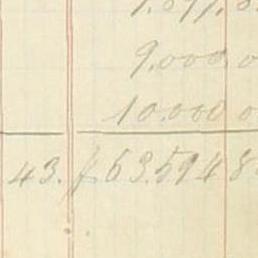 9.000 0
10.000 0
43. f 63.594 8